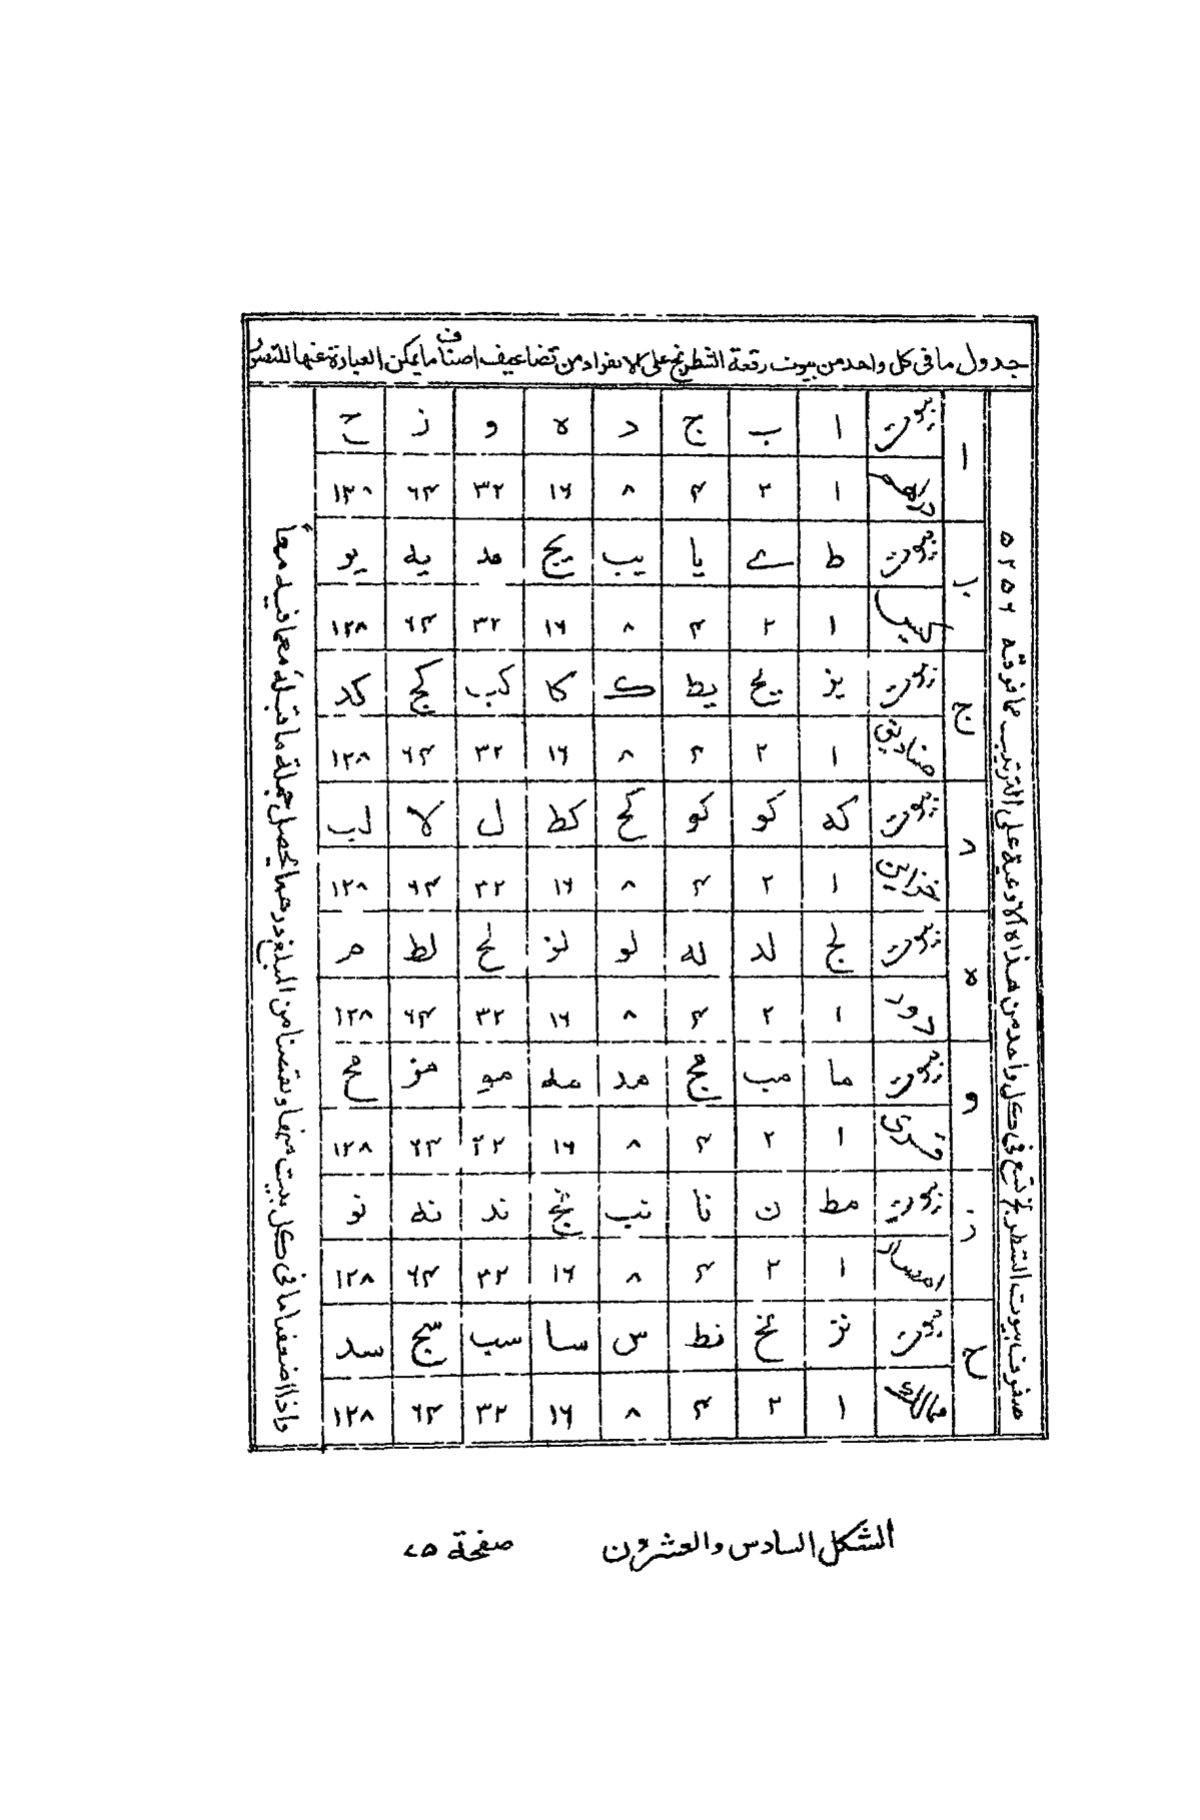 جدول ما فى كل واحد من بيوت رقعة الشطرنج على الانفراد من تضاعيف اصناف ما يمكن العبارة عنها للتصور
صفوف بيوت الشطرنج تسع فى كل واحد من هذه الاوعية على الترتيب مما فوقه ٥٢٥٦
ا بيوت ا ب ج د ه و ز ح
دراهم ١ ٢ ٤ ٨ ١٦ ٣٢ ٦٤ ١٢٨
ب بيوت ط ے يا يب يج يد يه يو
كيس ١ ٢ ٤ ٨ ١٦ ٣٢ ٦٤ ١٢٨
ج بيوت يز يح يط ك كا كب كج كد
صناديق ١ ٢ ٤ ٨ ١٦ ٣٢ ٦٤ ١٢٨
د بيوت كه كو كو كح كط ل لا لب
خزاين ١ ٢ ٤ ٨ ١٦ ٣٢ ٦٤ ١٢٨
ه بيوت لج لد له لو لز لح لط م
دور ١ ٢ ٤ ٨ ١٦ ٣٢ ٦٤ ١٢٨
و بيوت ما مب مج مد مه مو مز مح
قرى ١ ٢ ٤ ٨ ١٦ ٣٢ ٦٤ ١٢٨
ز بيوت مط ن نا نب نج ند نه نو
امصار ١ ٢ ٤ ٨ ١٦ ٣٢ ٦٤ ١٢٨
ح بيوت نز نح نط س سا سب سج سد
ممالك ١ ٢ ٤ ٨ ١٦ ٣٢ ٦٤ ١٢٨
واذا اضعفنا ما فى كل بيت منها ونقصنا من المبلغ درهما يحصل جملة ما قبله معما فيه معاً
الشكل السادس والعشرون صفحة ٤٥